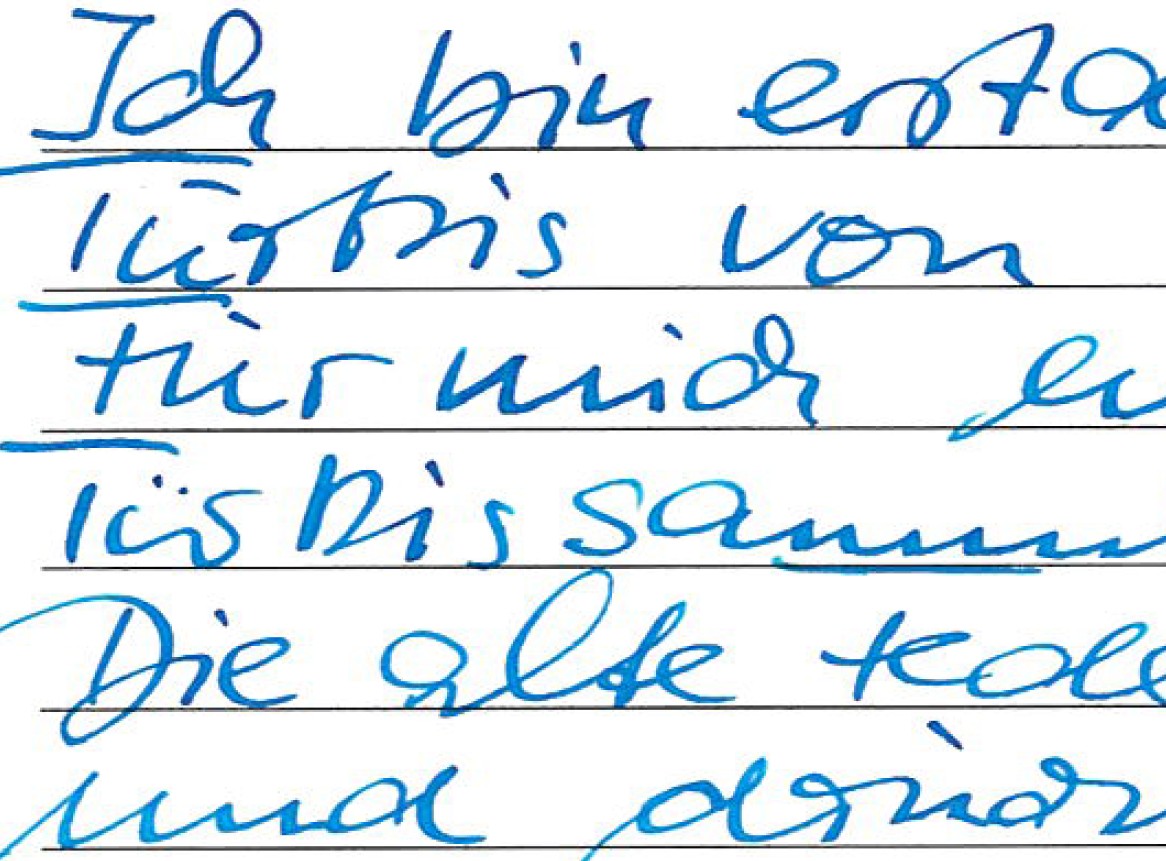 Ich bin ersta
Türkis von
für mich
Türkissamm
Die alte
und